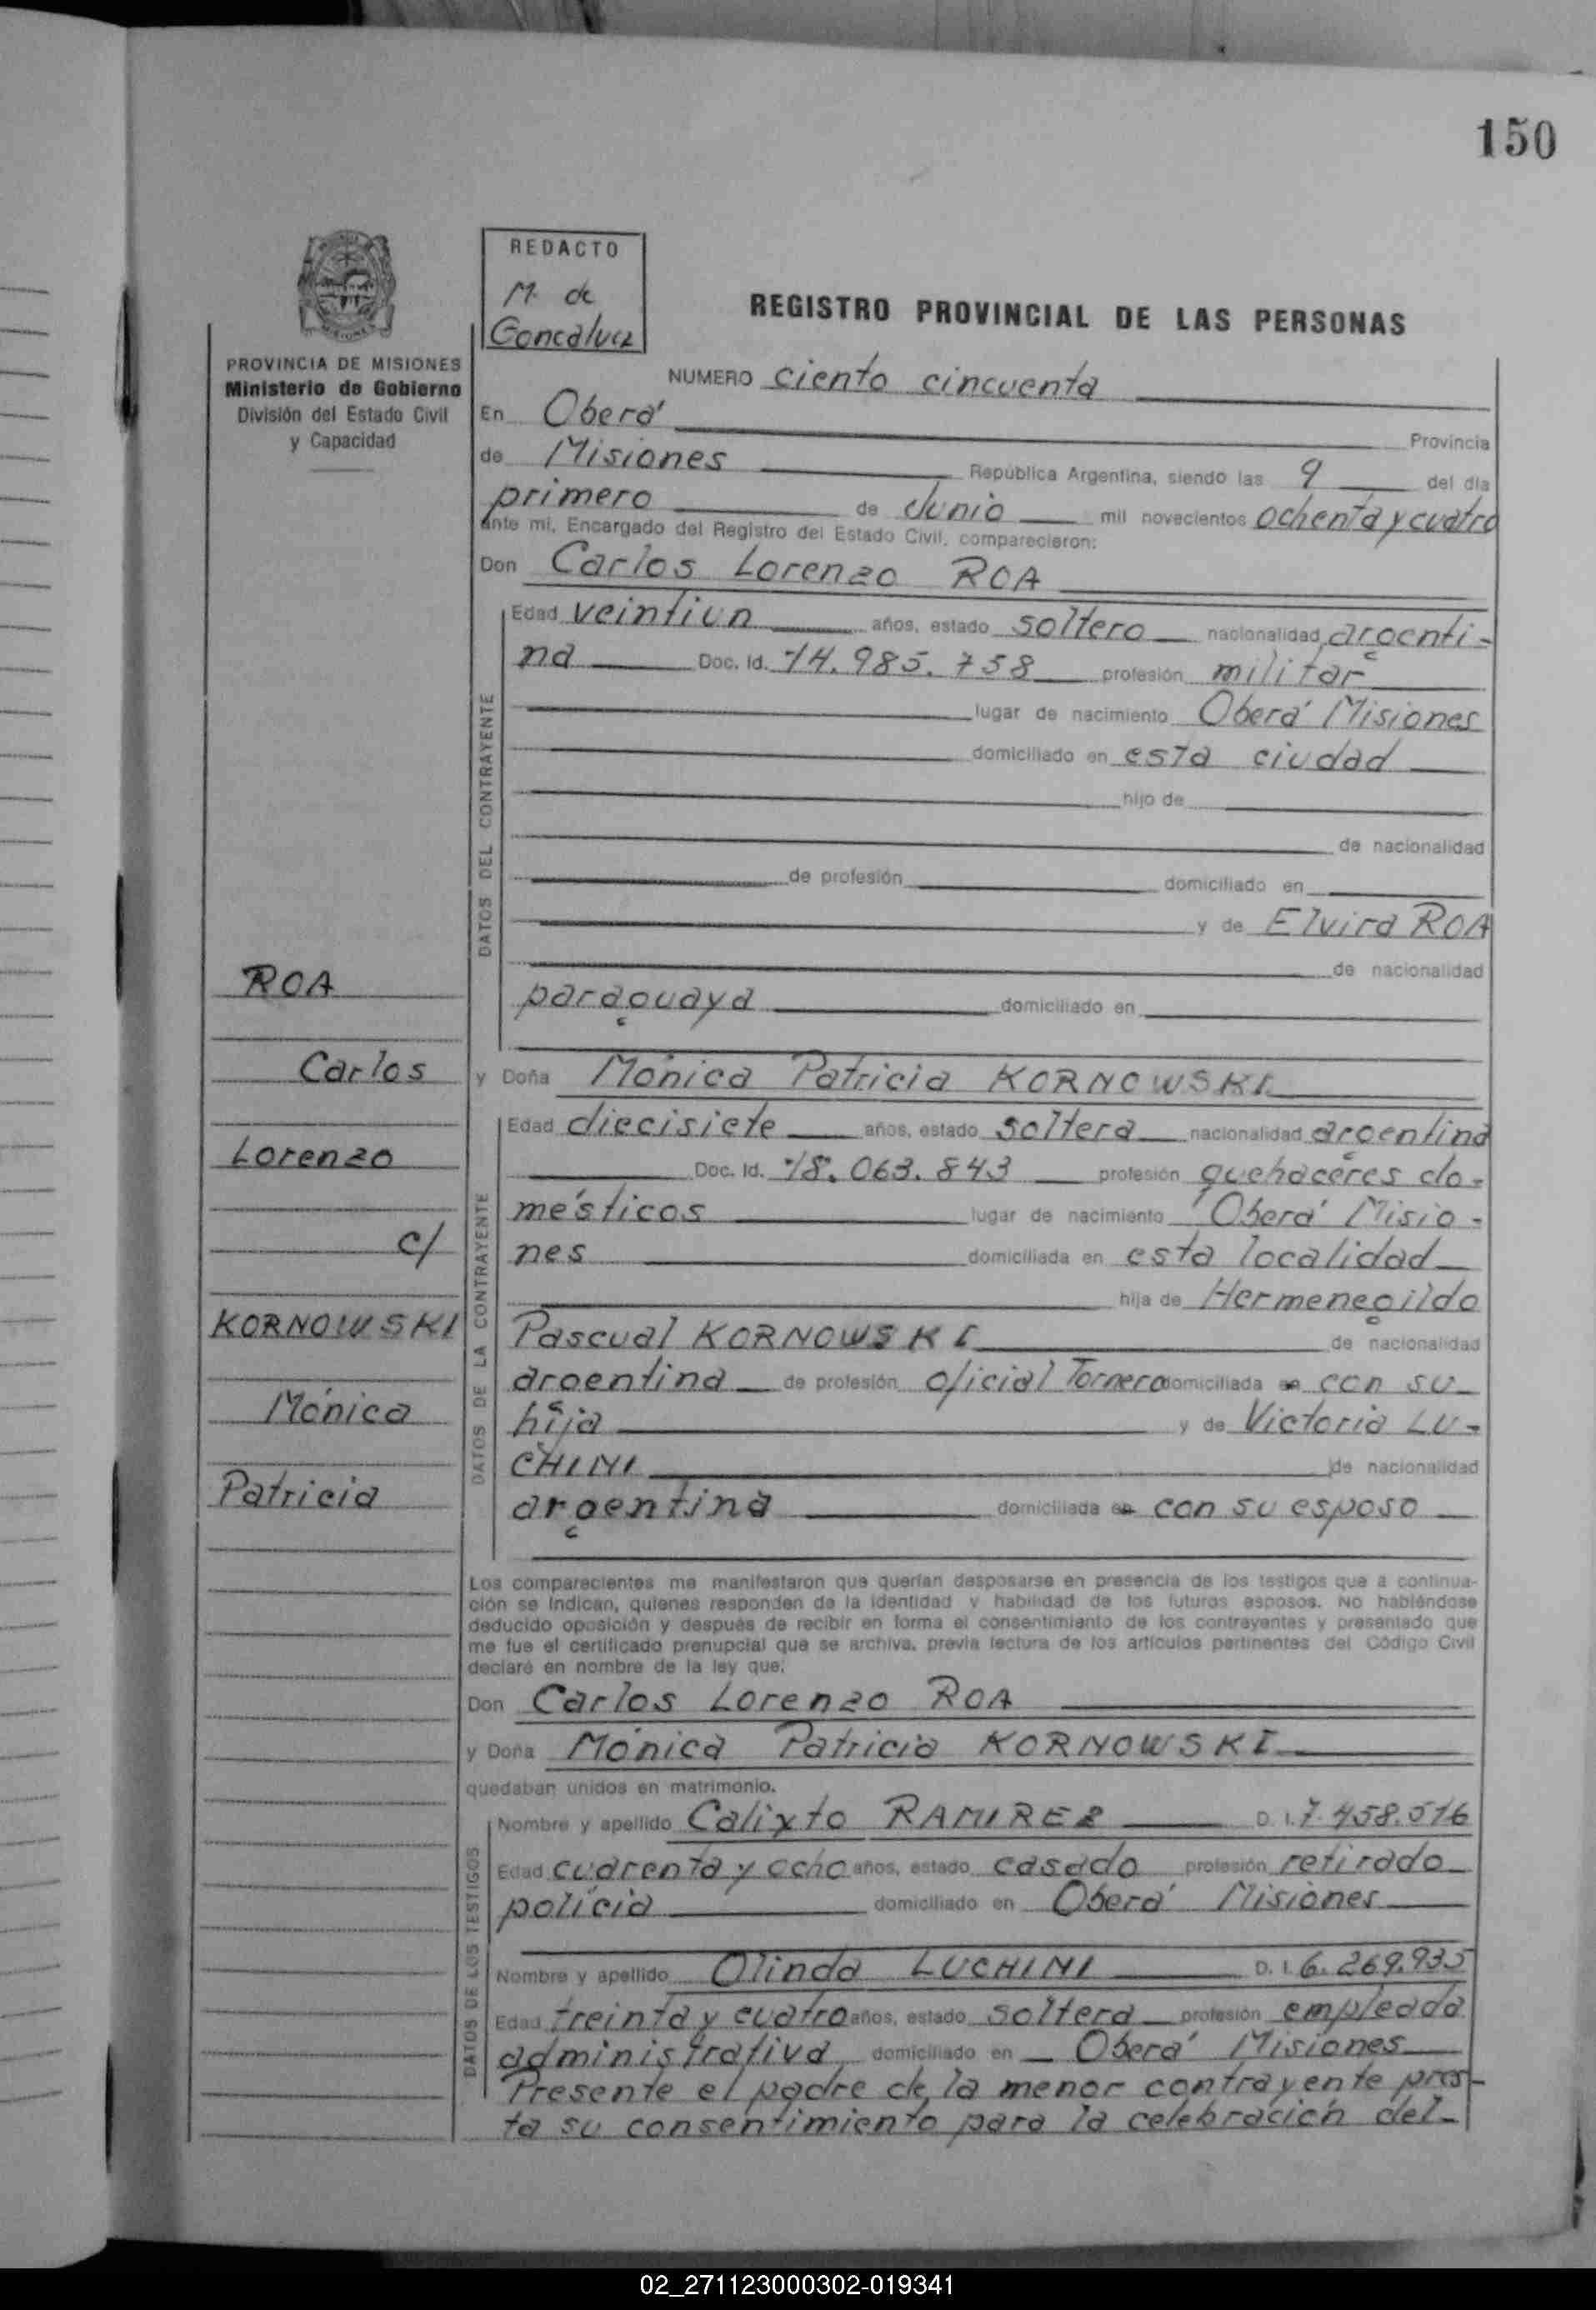 150
REDACTO
M. de
Goncalvez
REGISTRO PROVINCIAL DE LAS PERSONAS
PROVINCIA DE MISIONES
Ministerio de Gobierno
División del Estado Civil
y Capacidad
NUMERO ciento cincuenta
En Oberá Provincia
de Misiones República Argentina, siendo las 9 del día
primero de Junio mil novecientos ochenta y cuatro
ante mi, Encargado del Registro del Estado Civil, comparecieron:
Don Carlos Lorenzo ROA
DATOS DEL CONTRAYENTE
Edad veintiun años, estado soltero nacionalidad argenti-
na Doc. Id. 14.985.758 profesión militar
lugar de nacimiento Oberá Misiones
domiciliado en esta ciudad
hijo de
de nacionalidad
de profesión domiciliado en
y de Elvira ROA
de nacionalidad
paraguaya domiciliado en
y Doña Mónica Patricia KORNOWSKI
DATOS DE LA CONTRAYENTE
Edad diecisiete años, estado soltera nacionalidad argentina
Doc. Id. 18.063.843 profesión quehaceres do-
mésticos lugar de nacimiento Oberá Misio-
nes domiciliada en esta localidad
hija de Hermenegildo
Pascual KORNOWSKI de nacionalidad
argentina de profesión oficial Tornero domiciliada en con su
hija y de Victoria LU-
CHINI de nacionalidad
argentina domiciliada en con su esposo
ROA
Carlos
Lorenzo
c/
KORNOWSKI
Mónica
Patricia
Los comparecientes me manifestaron que querían desposarse en presencia de los testigos que a continua-
ción se indican, quienes responden de la identidad y habilidad de los futuros esposos. No habiéndose
deducido oposición y después de recibir en forma el consentimiento de los contrayentes y presentado que
me fue el certificado prenupcial que se archiva, previa lectura de los artículos pertinentes del Código Civil
declaré en nombre de la ley que:
Don Carlos Lorenzo ROA
y Doña Mónica Patricia KORNOWSKI
quedaban unidos en matrimonio.
DATOS DE LOS TESTIGOS
Nombre y apellido Calixto RAMIREZ D. I. 7.458.516
Edad cuarenta y ocho años, estado casado profesión retirado
policia domiciliado en Oberá Misiones
Nombre y apellido Olinda LUCHINI D. I. 6.269.935
Edad treinta y cuatro años, estado soltera profesión empleada
administrativa domiciliado en Oberá Misiones
Presente el padre de la menor contrayente pres-
ta su consentimiento para la celebración del
02_271123000302-019341